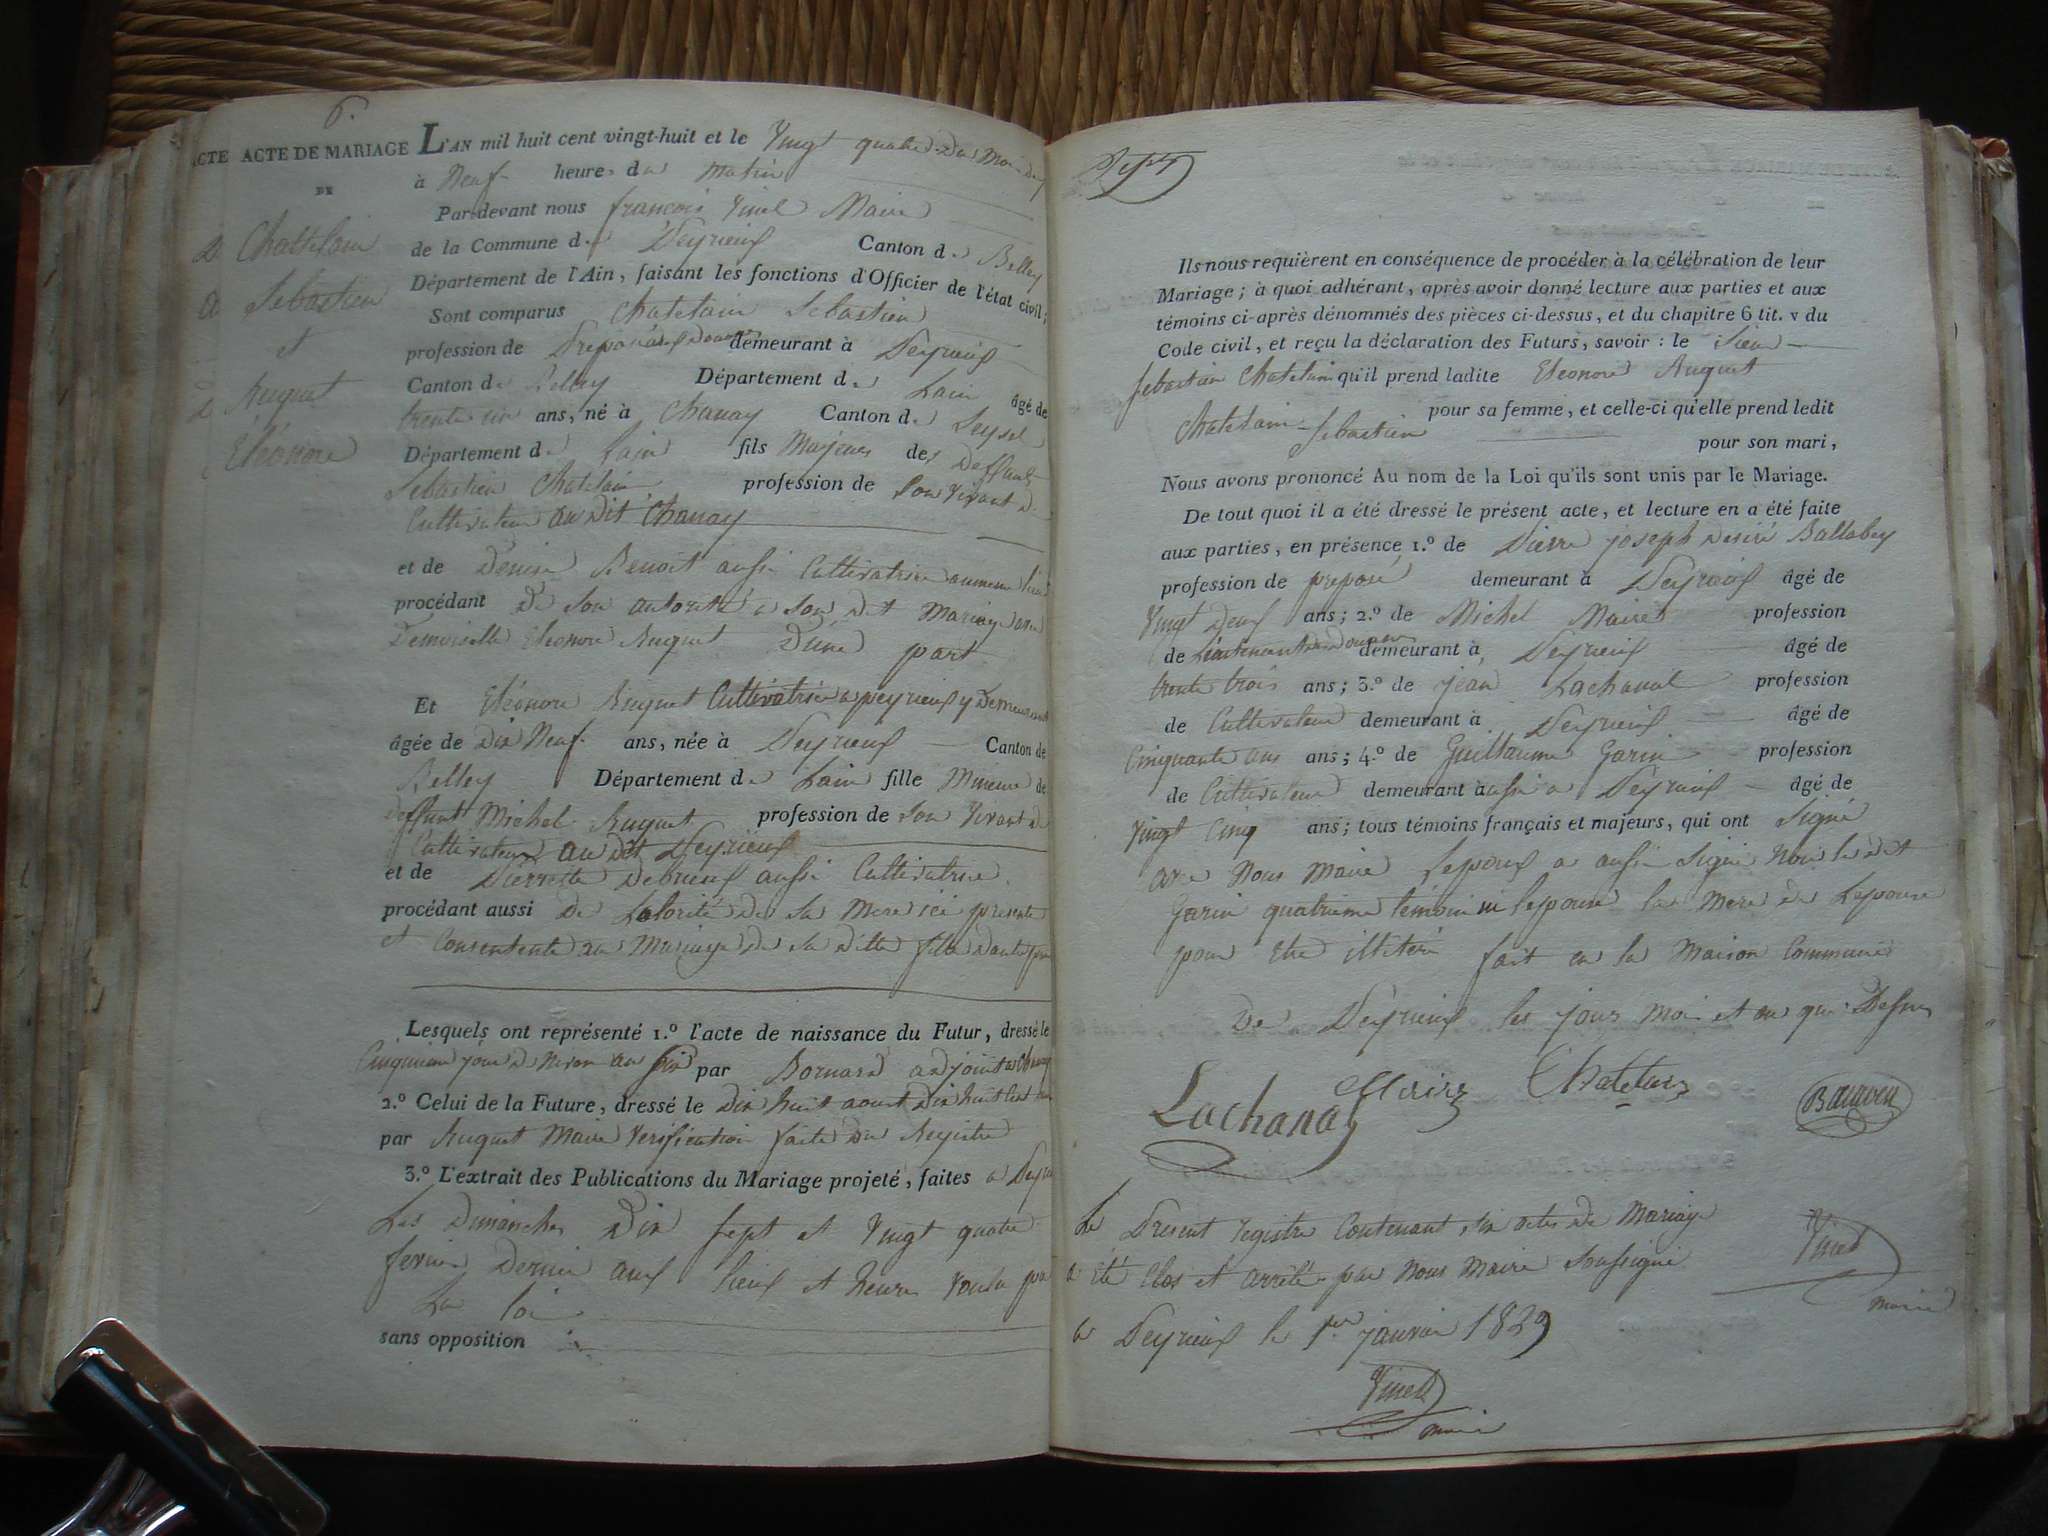 6.
ACTE ACTE DE MARIAGE L'AN mil huit cent vingt-huit et le Vingt quatre du Mois de
DE
à Neuf heures du matin
Par-devant nous françois Vinet Maire
de la Commune de Peyrieux Canton de Belley
Département de l'Ain, faisant les fonctions d'Officier de l'état civil;
Sont comparus Chatelain Sebastien
profession de Préposé des Douanes demeurant à Peyrieux
Canton de Belley Département de Lain âgé de
trente un ans, né à Chanay Canton de Seyssel
Département de Lain fils Majeur de Deffunt
Sebastien Chatelain profession de Son Vivant de
Cultivateur au Dit Chanay
et de Dénise Benoit aussi Cultivatrice au meme lieu
procédant De son autorité a son dit Mariage avec
Demoiselle Eléonore Auguet D'une part
Et Eléonore Auguet Cultivatrice a peyrieux y Demeurant
âgée de Dix Neuf ans, née à Peyrieux Canton de
Belley Département de Lain fille Mineure de
deffunt Michel Auguet profession de Son Vivant de
Cultivateur au dit Peyrieux
et de Pierrette Debrieux aussi Cultivatrice
procédant aussi De Lotorité De Sa Mere ici presente
et Consentente au Mariage De sa ditte fille D'autre part
Lesquels ont représenté 1.º l'acte de naissance du Futur, dressé le
Cinquieme jour de Nivose an six par Bornard adjoint a Chanay
2.º Celui de la Future, dressé le Dix huit aout Dix huit Cent
par Auguet Maire Verification faite du Registre
3.º L'extrait des Publications du Mariage projeté, faites a Peyrieux
Les Dimanches Dix Sept et Vingt quatre
fevrier Dernier aux lieux et heures Voulu par
La loi
sans opposition
De Chatelain
Sebastien
et
Auguet
Eléonore
Sept
Ils nous requièrent en conséquence de procéder à la célébration de leur
Mariage; à quoi adhérant, après avoir donné lecture aux parties et aux
témoins ci-après dénommés des pièces ci-dessus, et du chapitre 6 tit. v du
Code civil, et reçu la déclaration des Futurs, savoir : le Sieur
Sebastien Chatelain qu'il prend ladite Eléonore Auguet
pour sa femme, et celle-ci qu'elle prend ledit
Chatelain Sebastien
pour son mari,
Nous avons prononcé Au nom de la Loi qu'ils sont unis par le Mariage.
De tout quoi il a été dressé le présent acte, et lecture en a été faite
aux parties, en présence 1.º de Pierre joseph Desiré Ballabey
profession de preposé demeurant à Peyrieux âgé de
Vingt Deux ans; 2.º de Michel Maire profession
de Lieutenant des Douanes demeurant à Peyrieux âgé de
trente trois ans; 3.º de jean Lachanal profession
de Cultivateur demeurant à Peyrieux âgé de
Cinquante ans ans; 4.º de Guillaume Garin profession
de Cultivateur demeurant aussi a Peyrieux âgé de
Vingt Cinq ans; tous témoins français et majeurs, qui ont Signé
avec Nous Maire Lepoux a aussi Signé Non le dit
Garin quatrieme témoin ni lepouse la Mere de Lepouse
pour Etre illitéré fait en la Maison Commune
De Peyrieux les jour Moi et an que Dessus
Lachanal Maire Chatelain
Le Present registre Contenant six actes de Mariage
a été Clos et arrêté par Nous Maire Soussigné
a Peyrieux le 1er janvier 1829
Vinet
maire
Vinet
maire